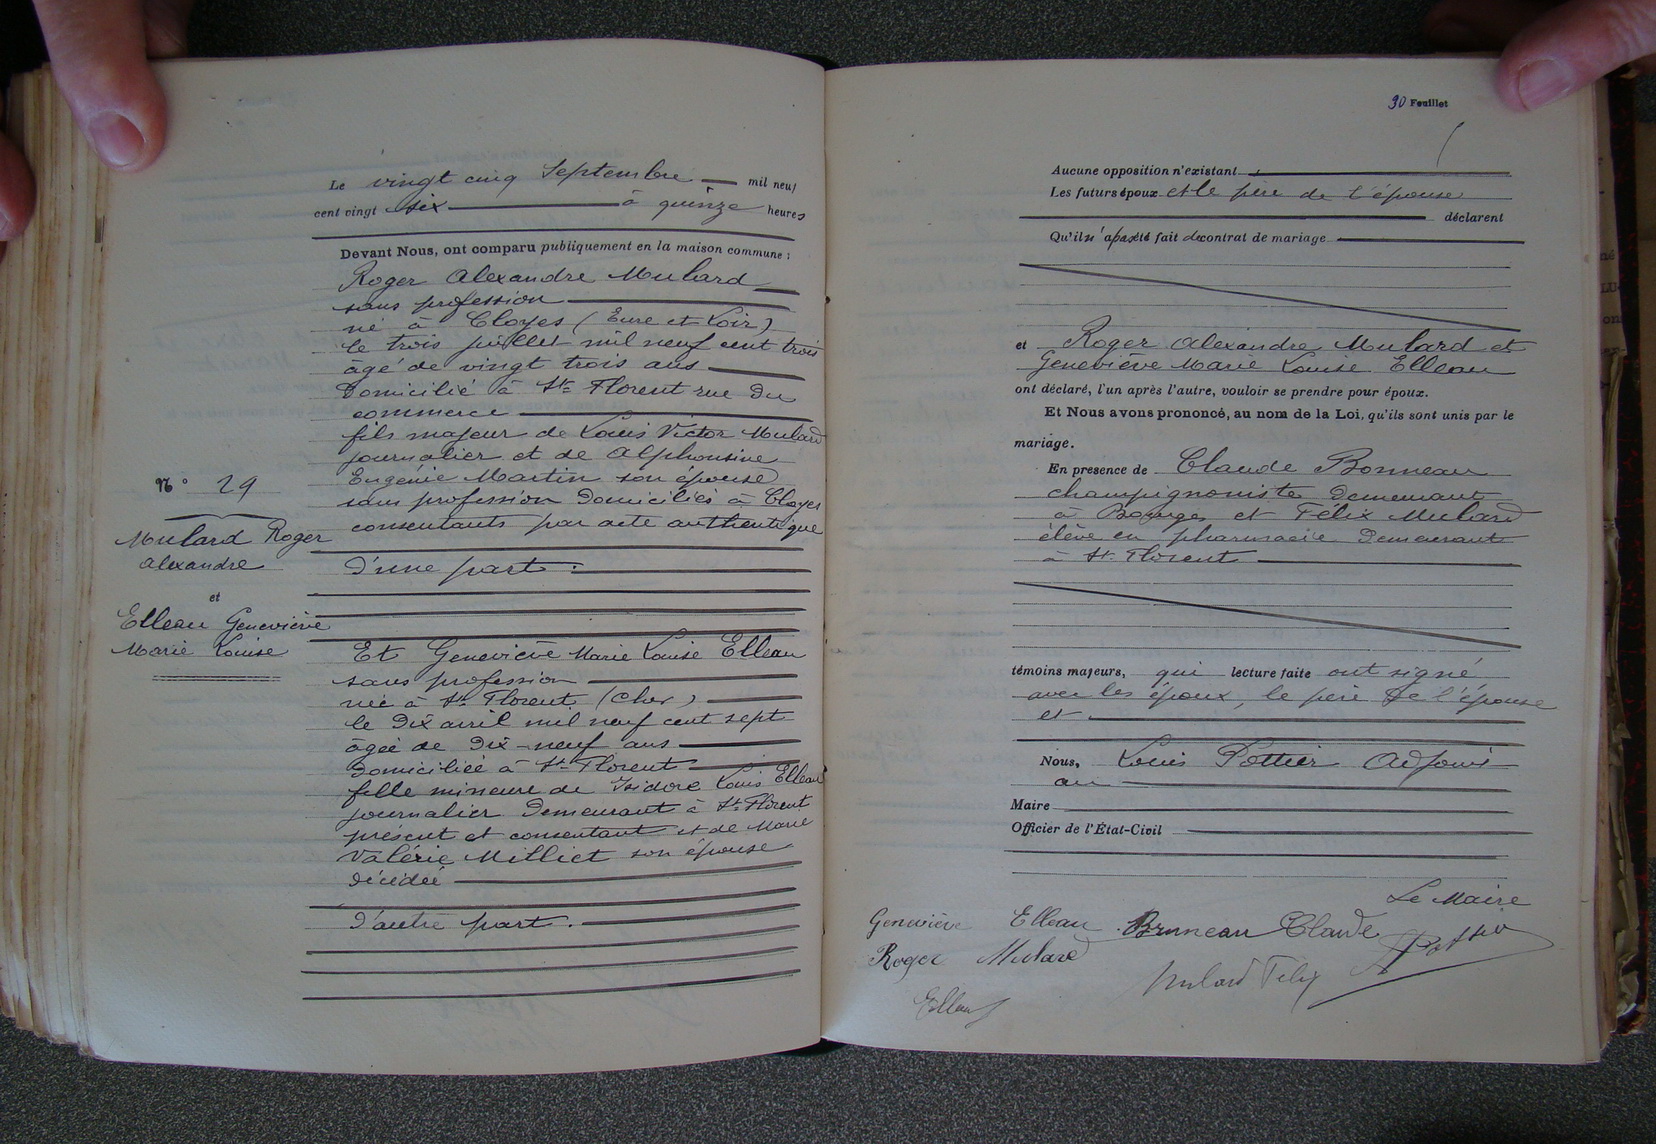 Le vingt cinq Septembre mil neuf
cent vingt six à quinze heures
Devant Nous, ont comparu publiquement en la maison commune :
Roger Alexandre Mulard
sans profession
né à Cloyes (Eure et Loir)
le trois juillet mil neuf cent trois
âgé de vingt trois ans
Domicilié à St Florent rue du
commerce
fils majeur de Louis Victor Mulard
journalier et de Alphonsine
Eugénie Martin son épouse
sans profession domiciliés à Cloyes
consentants par acte authentique
D'une part.
N° 29
Mulard Roger
Alexandre
et
Elleau Geneviève
Marie Louise
Et Geneviève Marie Louise Elleau
sans profession
née à St Florent (Cher)
le dix avril mil neuf cent sept
âgée de dix-neuf ans
Domiciliée à St Florent
fille mineure de Isidore Louis Elleau
journalier demeurant à St Florent
présent et consentant et de Marie
Valérie Milliet son épouse
décédée
D'autre part.
30 Feuillet
Aucune opposition n'existant
Les futurs époux et le père de l'épouse
déclarent
Qu'il n'a pas été fait de contrat de mariage
et Roger Alexandre Mulard et
Geneviève Marie Louise Elleau
ont déclaré, l'un après l'autre, vouloir se prendre pour époux.
Et Nous avons prononcé, au nom de la Loi, qu'ils sont unis par le
mariage.
En presence de Claude Bonneau
champignoniste demeurant
à Bourges et Félix Mulard
élève en pharmacie demeurant
à St Florent
témoins majeurs, qui lecture faite ont signé
avec les époux, le père de l'épouse
et
Nous, Louis Pottier Adjoint
au
Maire
Officier de l'État-Civil
Le Maire
Geneviève Elleau Bruneau Claude
Roger Mulard
Mulard Felix
Elleau